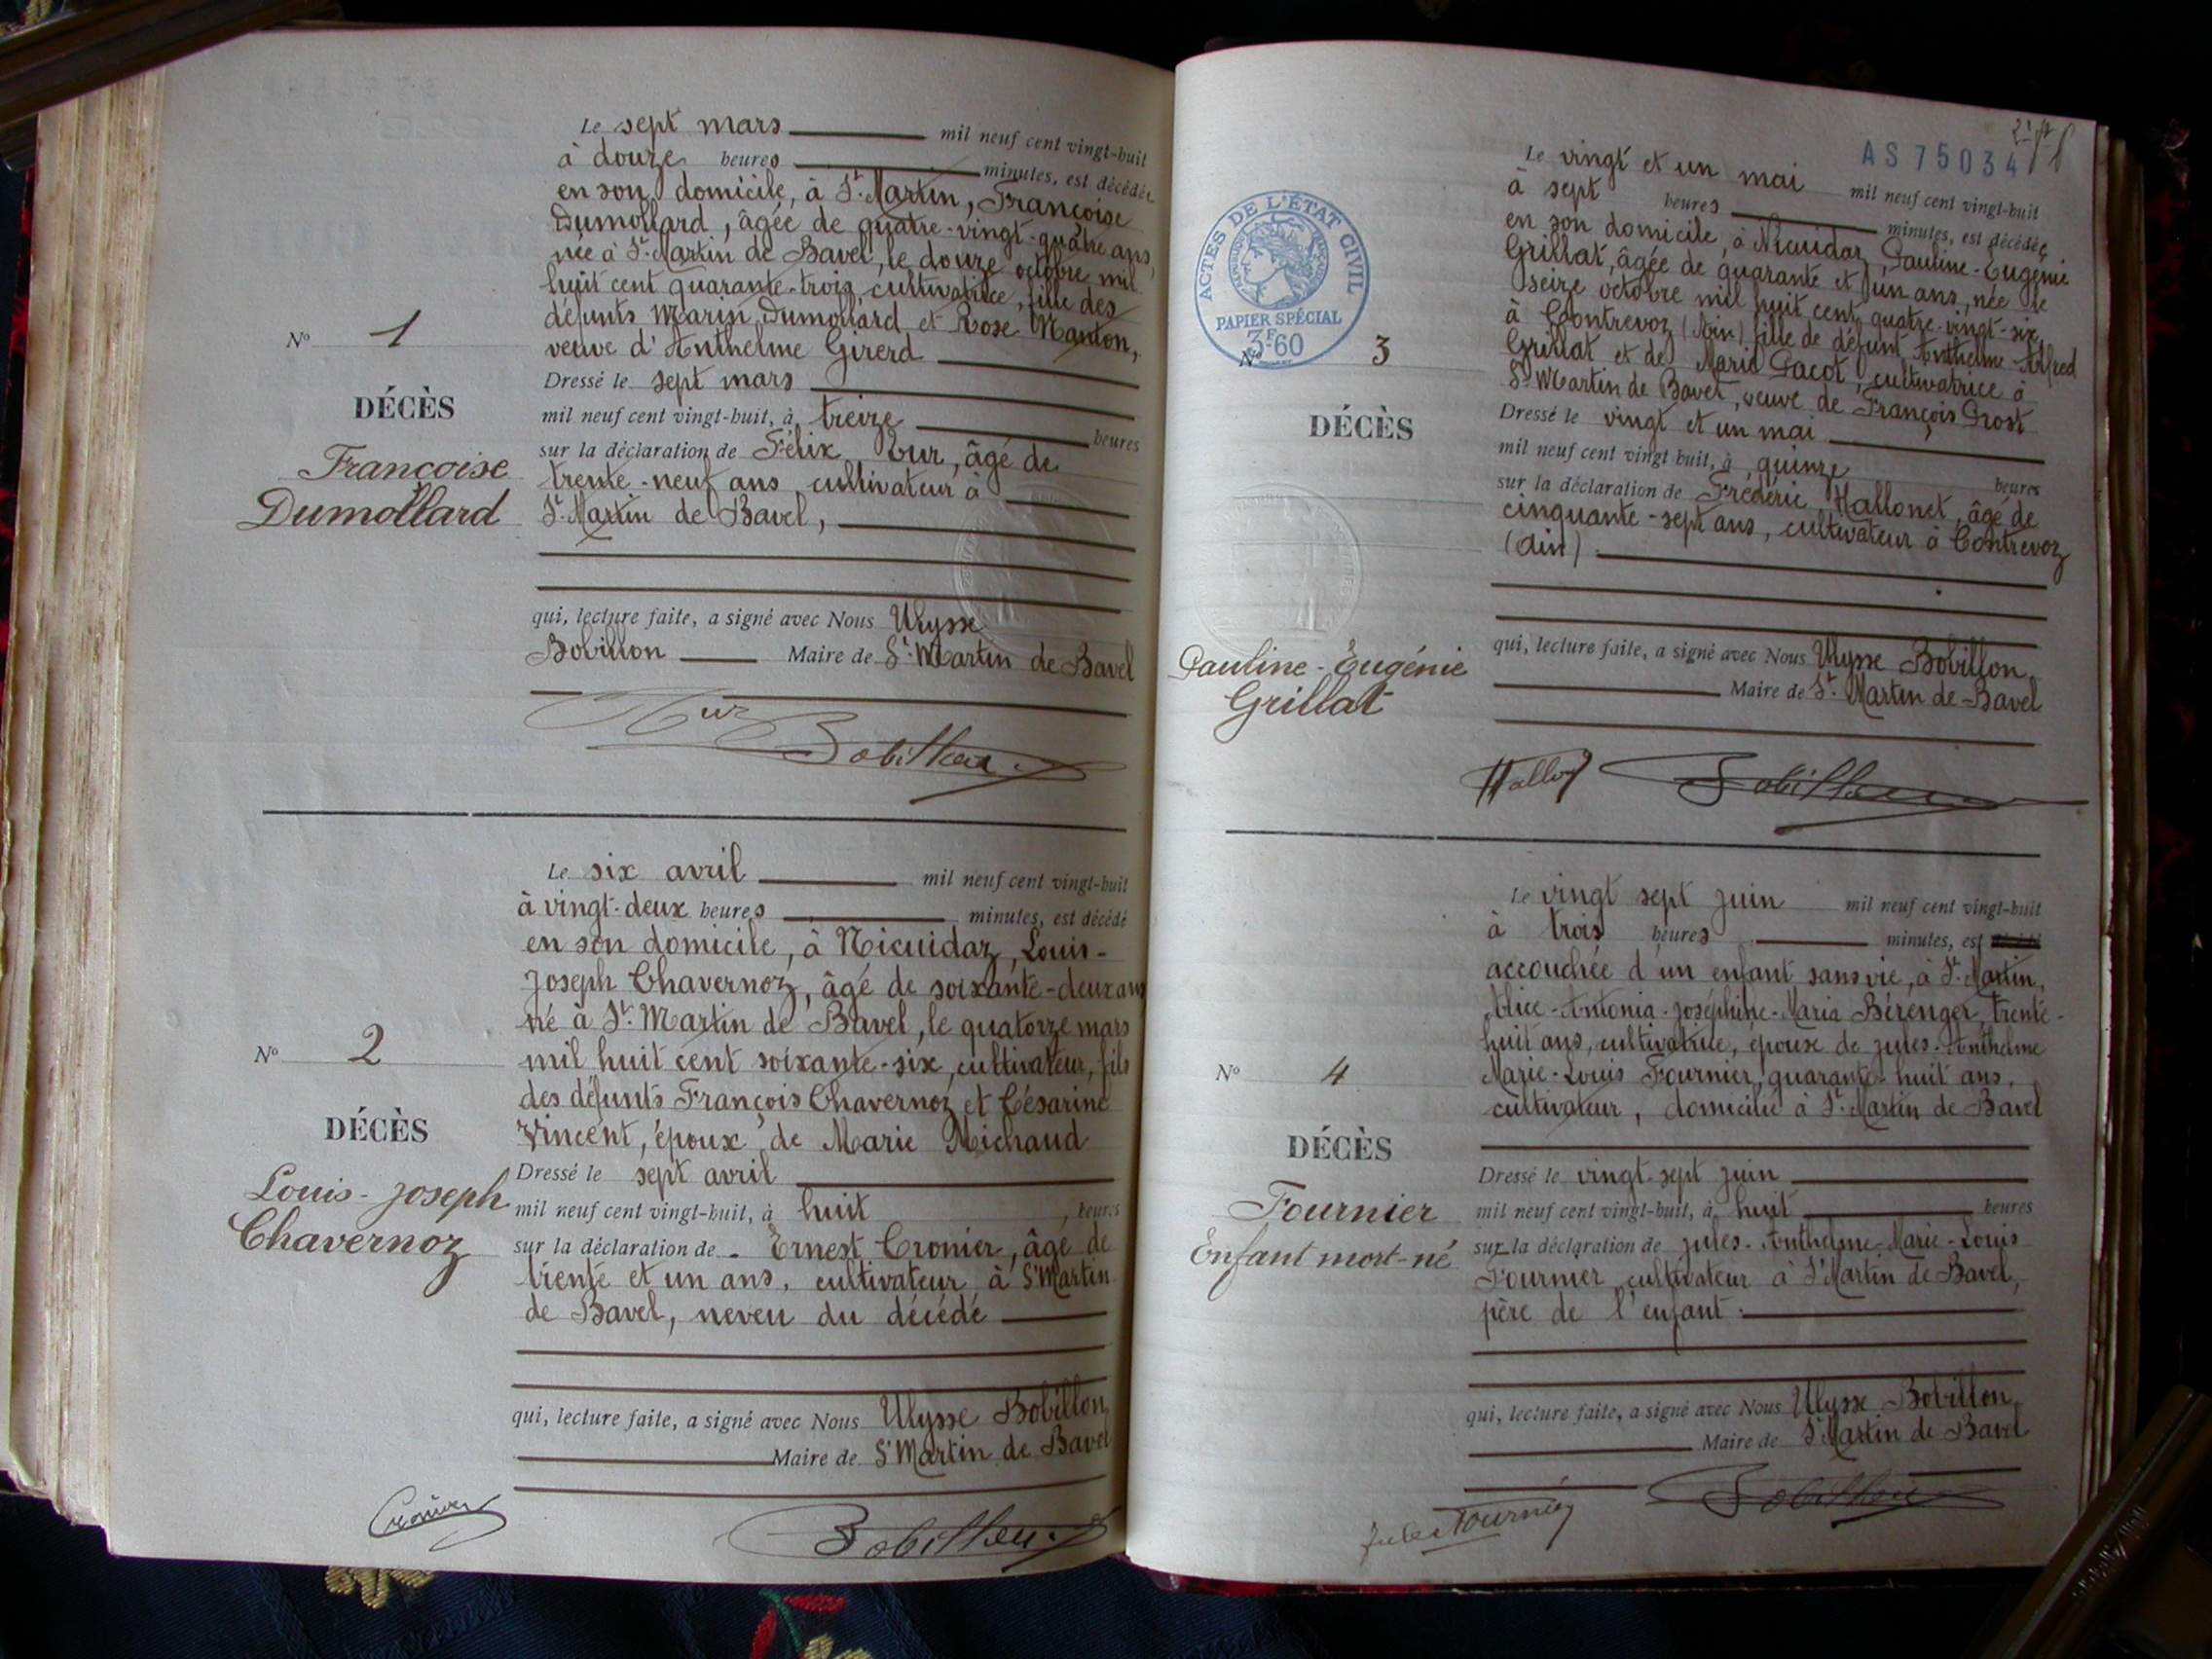 Le sept mars mil neuf cent vingt-huit
à douze heures minutes, est décédée
en son domicile, à St. Martin, Françoise
Dumollard, âgée de quatre-vingt-quatre ans,
née à St. Martin de Bavel, le douze octobre mil
huit cent quarante-trois, cultivatrice, fille des
défunts Marin Dumollard et Rose Manton,
veuve d'Anthelme Girerd
Nº 1
DÉCÈS
Françoise
Dumollard
Dressé le sept mars
mil neuf cent vingt-huit, à treize heures
sur la déclaration de Félix, âgé de
trente-neuf ans, cultivateur à
St. Martin de Bavel,
qui, lecture faite, a signé avec Nous Ulysse
Bobillon Maire de St. Martin de Bavel
Bobillon
Le six avril mil neuf cent vingt-huit
à vingt-deux heures minutes, est décédé
en son domicile, à Nicuidaz, Louis-
Joseph Chavernoz, âgé de soixante-deux ans
né à St. Martin de Bavel, le quatorze mars
mil huit cent soixante-six, cultivateur, fils
des défunts François Chavernoz et Césarine
Vincent, époux de Marie Michaud
Nº 2
DÉCÈS
Louis-Joseph
Chavernoz
Dressé le sept avril
mil neuf cent vingt-huit, à huit heures
sur la déclaration de Ernest Cronier, âgé de
trente et un ans, cultivateur à St Martin
de Bavel, neveu du décédé
qui, lecture faite, a signé avec Nous Ulysse Bobillon
Maire de St Martin de Bavel
Cronier
Bobillon
AS 75034
ACTES DE L'ÉTAT CIVIL
PAPIER SPÉCIAL
3F60
Le vingt et un mai mil neuf cent vingt-huit
à sept heures minutes, est décédée
en son domicile, à Nicuidaz, Pauline-Eugénie
Grillat, âgée de quarante et un ans, née le
seize octobre mil huit cent quatre-vingt-six
à Contrevoz (Ain) fille de défunt Anthelme-Alfred
Grillat et de Marie Pacot, cultivatrice à
St Martin de Bavel, veuve de François Prost
Nº 3
DÉCÈS
Pauline-Eugénie
Grillat
Dressé le vingt et un mai
mil neuf cent vingt huit, à quinze heures
sur la déclaration de Frédéric Hallonet, âgé de
cinquante-sept ans, cultivateur à Contrevoz
(Ain)
qui, lecture faite, a signé avec Nous Ulysse Bobillon
Maire de St. Martin de Bavel
Bobillon
Le vingt sept juin mil neuf cent vingt-huit
à trois heures minutes, est
accouchée d'un enfant sans vie, à St. Martin,
Alice-Antonia-Joséphine-Maria Bérenger, trente-
huit ans, cultivatrice, épouse de Jules-Anthelme
Marie-Louis Fournier, quarante-huit ans,
cultivateur, domicilié à St. Martin de Bavel
Nº 4
DÉCÈS
Fournier
Enfant mort-né
Dressé le vingt-sept juin
mil neuf cent vingt-huit, à huit heures
sur la déclaration de Jules-Anthelme-Marie-Louis
Fournier, cultivateur à St Martin de Bavel,
père de l'enfant.
qui, lecture faite, a signé avec Nous Ulysse Bobillon
Maire de St Martin de Bavel
Jules Fournier
Bobillon